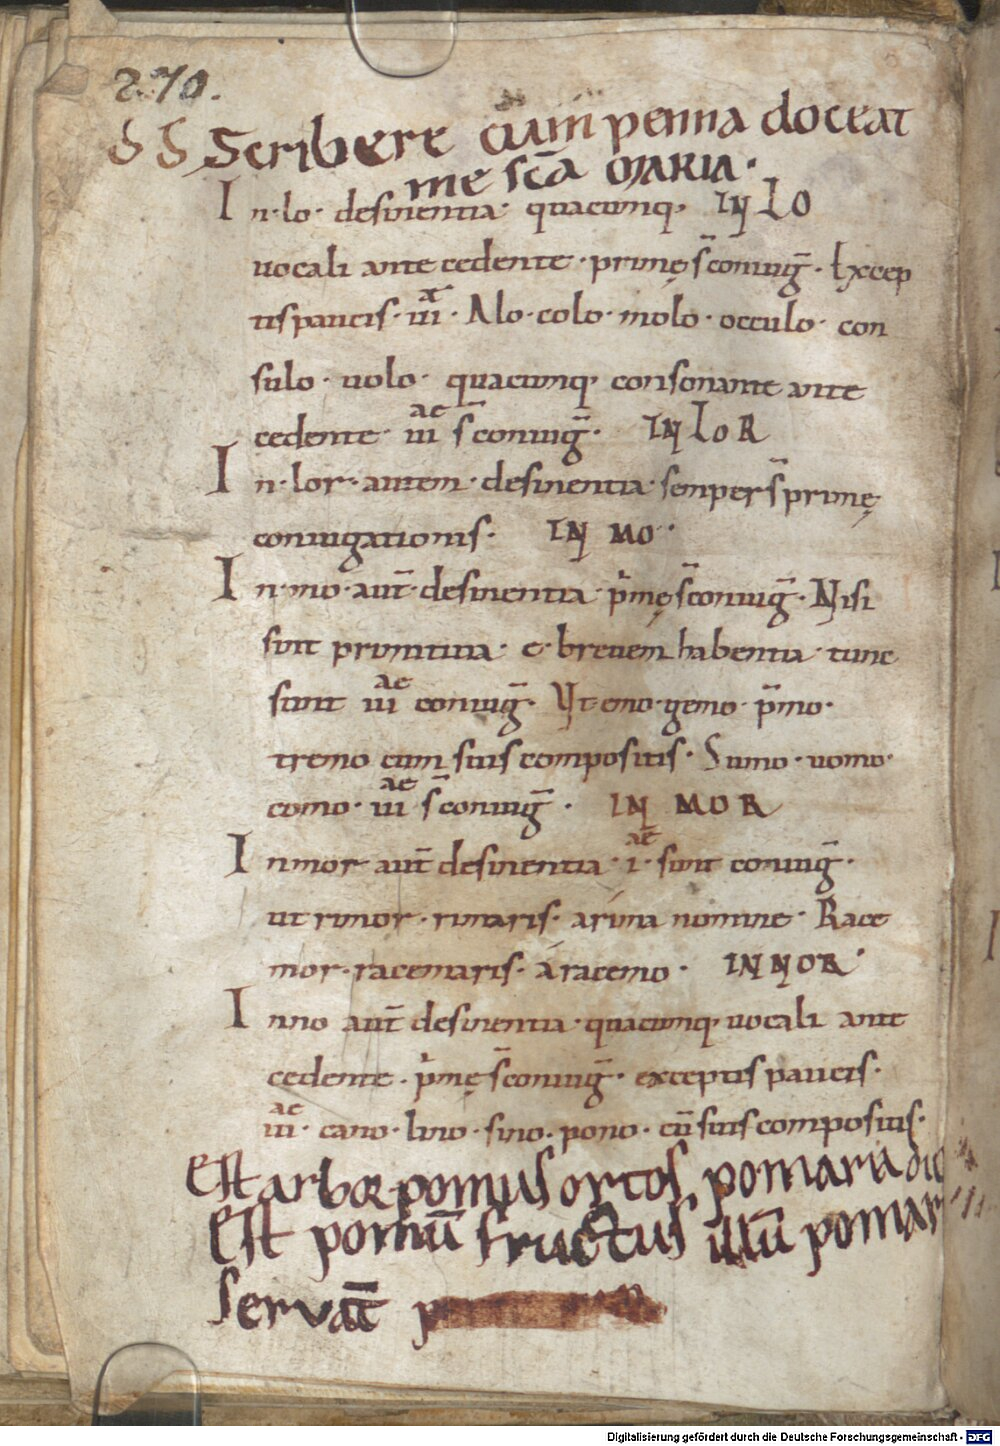 270.
S S Scribere cum penna doceat
me sc̄a MARIA·
In·lo· desinentia· quacumq; IN LO
vocali antecedente· primę s̄ coniuḡ· Excep
tis paucis· iiiˣ· Alo·colo·molo·occulo·con
sulo· uolo· quacumq; consonante ante
cedente· iiiᵃᵉ s̄ coniuḡ· IN LOR
In·lor·autem·desinentia·semper s̄ primę
coniugationis· IN MO·
In·mo·aut̄·desinentia· p̍mę s̄ coniuḡ· Nisi
sint primitiua· e·breuem habentia· tunc
sunt iiiᵃᵉ coniuḡ· Ut emo·gemo· p̄mo·
tremo cum suis compositis· Sumo·uomo·
como· iiiᵃᵉ s̄ coniuḡ· IN MOR
Inmor aut̄ desinentia·i·ᵃᵉ sunt coniuḡ·
ut rimor·rimaris· a rima nomine· Race
mor·racemaris· á racemo· IN NOR·
Inno aut̄ desinentia·quacumq; uocali ante
cedente· p̍mę s̄ coniuḡ· exceptis paucis·
iiiᵃᵉ· cano·lino·sino·pono·cū suis compositis·
Est arbor pomus ortos pomaria dic
Est pomū fructus illū pomar
servat̄
Digitalisierung gefördert durch die Deutsche Forschungsgemeinschaft - DFG